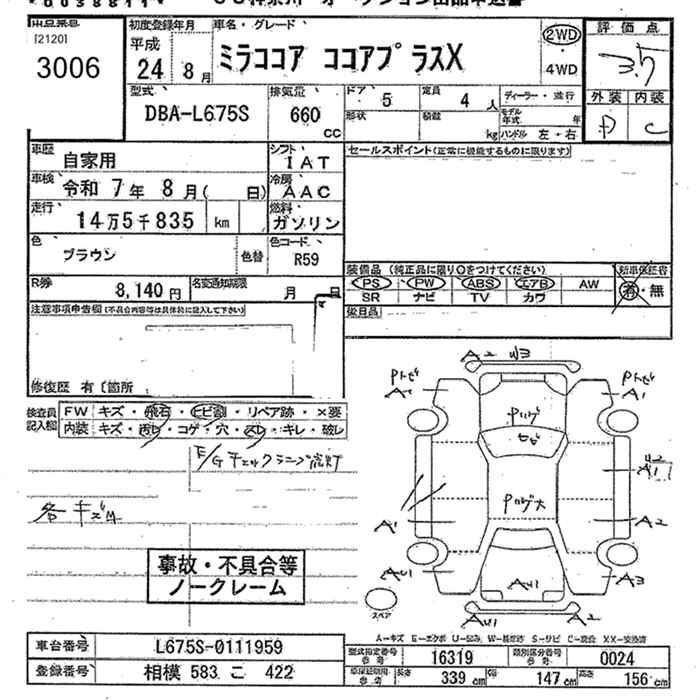 出品票
[2120]
3006
初度登録年月
平成
24 8月
車名・グレード
ミラココア ココアプラスX
2WD
・
4WD
評価点
3.5
外装 内装
D C
型式
DBA-L675S
排気量
660
CC
ドア
5
定員
4人
ディーラー・並行
形状
積載
kg
モデル年式
年
ハンドル 左・右
車歴
自家用
シフト
IAT
セールスポイント(正常に機能するものに限ります)
車検
令和 7年 8月( 日)
冷房
AAC
走行
14万5千835 km
燃料
ガソリン
色
ブラウン
色替
色コード
R59
装備品(純正品に限り○をつけてください)
新車保証書
PS PW ABS エアB AW
SR ナビ TV カワ
有・無
後日品
R券
8,140円
名変通知期限
月 日
注意事項申告欄(不具合内容等は具体的に記入して下さい)
修復歴 有〔箇所
検査員記入欄
FW キズ・飛石・ヒビ割・リペア跡・×要
内装 キズ・汚レ・コゲ・穴・スレ・キレ・破レ
E/Gチェックランプ点灯
各キズ凹
事故・不具合等
ノークレーム
A2 W3
Pトビ
Pトビ
A1
Pハゲ
ヒビ
Pハゲ大
U2
A1
A1
A2
AU1
AU1
A3
AU1
A2
スペア
A-キズ E-エクボ U-凹み W-補修跡 S-サビ C-腐食 XX-交換済
車台番号
L675S-0111959
登録番号
相模 583 こ 422
型式指定番号
16319
類別区分番号
0024
長さ
339 cm
幅
147 cm
高さ
156 cm